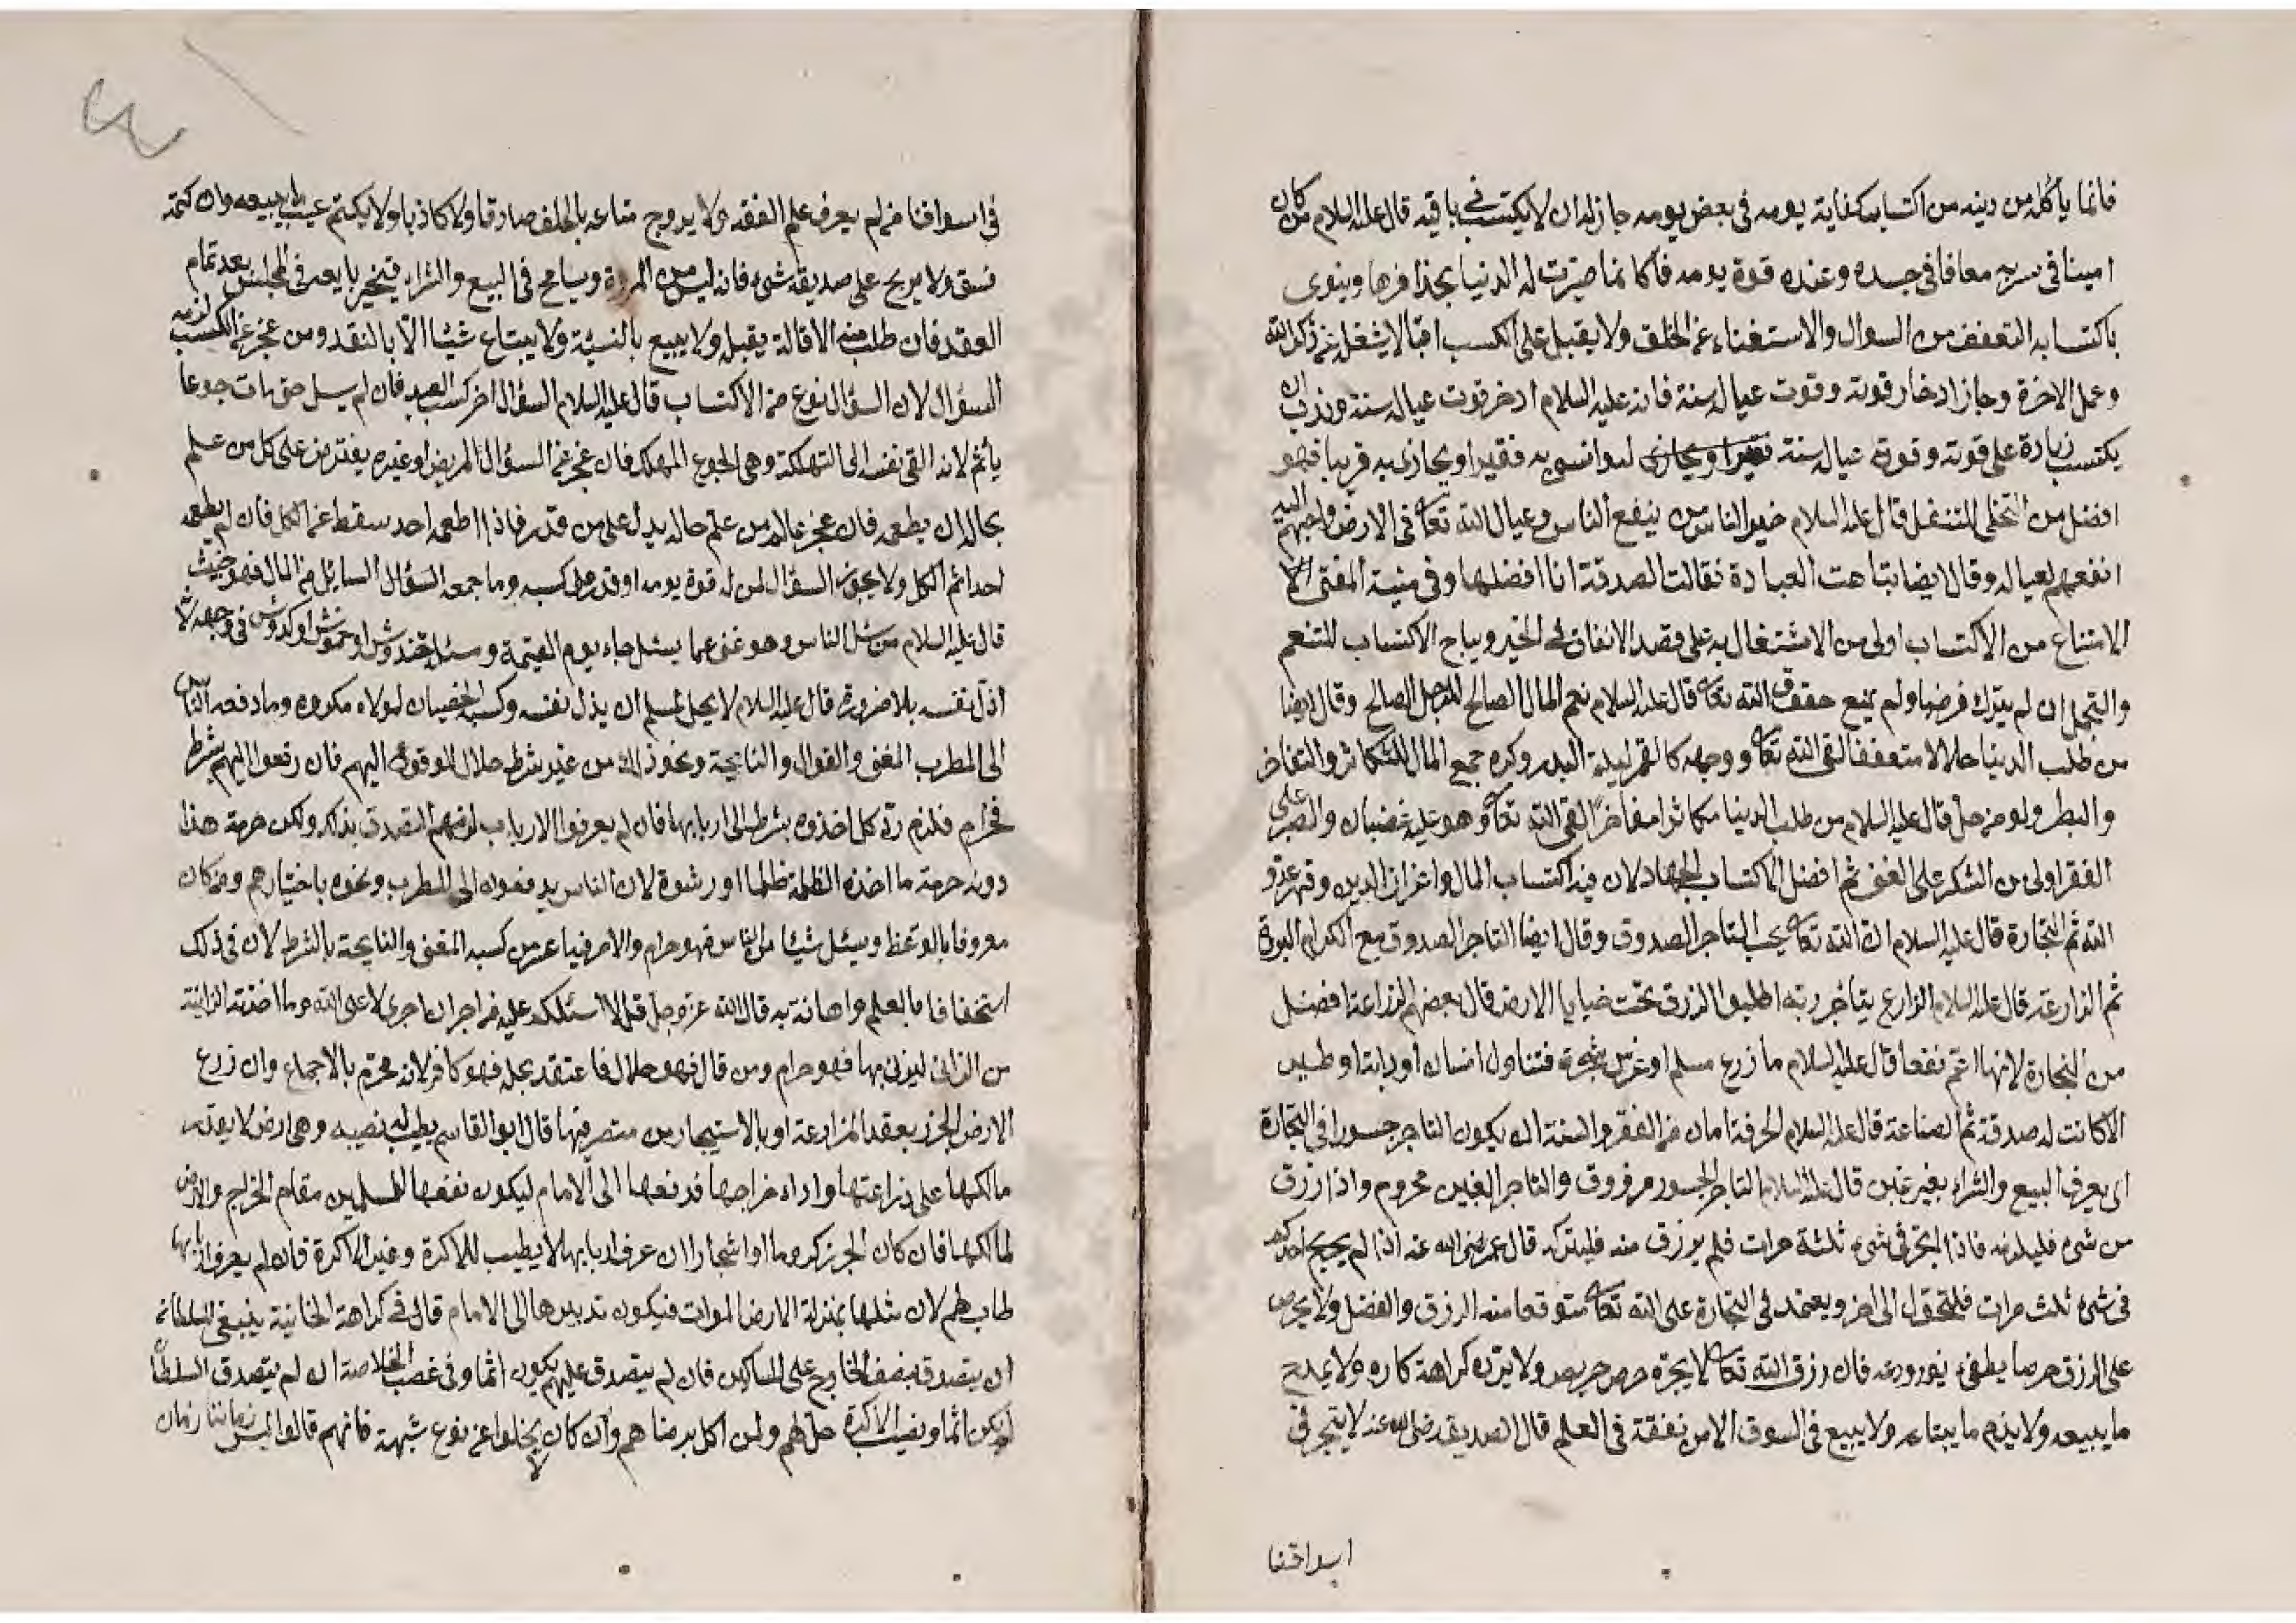 فانما يأكله من دينه من اكتساب كفاية يومه فى بعض يومه جاز له ان لا يكتسب فى باقيه قال عليه السلام من كان
امينا فى سربه معافا فى جسده وعنده قوة يومه فكانما حيزت له الدنيا بحذافرها وينوى
باكتسابه التعفف من السوال والاستغناء عن الخلق ولا يقبل على الكسب اقبالا يشغله عن ذكر الله
وعمل الاخرة وجاز ادخار قوته وقوت عياله سنة فانه عليه السلام ادخر قوت عياله سنة وندب ان
يكتسب زيادة على قوته وقوة عياله سنة ليواسى به فقيرا او يجازى به قريبا فهو
افضل من التخلى للتنفل قال عليه السلام خير الناس من ينفع الناس وعيال الله تعالى فى الارض واحبهم اليه
انفعهم لعياله وقال ايضا تباهت العبادة فقالت الصدقة انا افضلها وفى منية المفتى
الامتناع من الاكتساب اولى من الاشتغال به على قصد الانفاق فى الخير ويباح الاكتساب للتنعم
والتجمل ان لم يترك فرضا ولم يمنع حقوق الله تعالى قال عليه السلام نعم المال الصالح للرجل الصالح وقال ايضا
من طلب الدنيا حلالا متعففا لقى الله تعالى ووجهه كالقمر ليلة البدر وكره جمع المال للتكاثر والتفاخر
والبطر ولو من حل قال عليه السلام من طلب الدنيا مكاثرا مفاخرا لقى الله تعالى وهو عليه غضبان والصبر على
الفقر اولى من الشكر على الغنى ثم افضل الاكتساب الجهاد لان فيه اكتساب المال واعزاز الدين وقهر عدو
الله ثم التجارة قال عليه السلام ان الله تعالى يحب التاجر الصدوق وقال ايضا التاجر الصدوق مع الكرام البررة
ثم الزراعة قال عليه السلام الزارع يتاجر ربه اطلبوا الرزق تحت خبايا الارض قال بعضهم الزراعة افضل
من التجارة لانها اعم نفعا قال عليه السلام ما زرع مسلم او غرس شجرة فتناول انسان او دابة او طير
الا كانت له صدقة ثم الصناعة قال عليه السلام الحرفة امان من الفقر والسنة ان يكون التاجر جسورا فى التجارة
اى يعرف البيع والشراء بغير غبن قال عليه السلام التاجر الجسور مرزوق والتاجر الغبين محروم واذا رزق
من شئ فليلزمه فاذا اتجر فى شئ ثلثة مرات فلم يرزق منه فليتركه قال عمر رضى الله عنه اذا لم يربح احدكم
فى شئ ثلث مرات فليتحول الى اخر ويعتمد فى التجارة على الله تعالى متوقعا منه الرزق والفضل ولا يحرص
على الرزق حرصا يطفئ نور ورعه فان رزق الله تعالى لا يجره حرص حريص ولا يرده كراهة كاره ولا يمدح
ما يبيعه ولا يذم ما يبتاعه ولا يبيع فى السوق الا من تفقه فى العلم قال الصديق رضى الله عنه لا يتجر فى
اسواقنا
فى اسواقنا من لم يعرف علم الفقه ولا يروج متاعه بالحلف صادقا ولا كاذبا ولا يكتم عيب ما يبيعه وان كتمه
فسق ولا يربح على صديقه شئ فانه ليس من المروة ويسامح فى البيع والشراء يتخير بايعه فى المجلس بعد تمام
العقد فان طلب منه الاقالة يقبله ولا يبيع بالنسية ولا يبتاع شيئا الا بالنقد ومن عجز عن الكسب لزمه
السؤال لان السؤال نوع من الاكتساب قال عليه السلام السؤال اخر كسب العبد فان لم يسل حتى مات جوعا
يأثم لانه القى نفسه الى التهلكة وهى الجوع المهلك فان عجز عن السؤال المريض او غيره يفترض على كل من علم
بحاله ان يطعمه فان عجز عنه من علم حاله يدل على من قدر فاذا اطعمه احد سقط عن الكل فان لم يطعمه
احد اثم الكل ولا يجوز السؤال لمن له قوة يومه او قدر على كسبه وما جمعه السؤال السايل من المال فهو خبيث
قال عليه السلام من سئل الناس وهو غنى عما يسئل جاء يوم القيمة ومسئلته خدوش او خموش او كدوش فى وجهه
اذل نفسه بلا ضرورة قال عليه السلام لا يحل لمسلم ان يذل نفسه وكسب الخصيان لمولاه مكروه وما دفعه الناس
الى المطرب المغنى والقوال والنايحة ونحو ذلك من غير شرط حلال للوقوع اليهم فان دفعوا اليهم بشرط
فحرام فلزم رد كل اخذوه بشرط الى اربابها فان لم يعرفوا الارباب لزمهم التصدق بذلك ولكن حرمة هذا
دون حرمة ما اخذه الظلمة ظلما او رشوة لان الناس يدفعون الى المطرب ونحوه باختيارهم ومن كان
معروفا بالوعظ ويسئل شيئا من الناس فهو حرام والامر فيها اعز من كسب المغنى والنايحة بالشرط لان فى ذلك
استخفافا بالعلم واهانة به قال الله عز وجل قل لا اسئلكم عليه من اجر ان اجرى الا على الله وما اخذته الزانية
من الزانى ليزنى بها فهو حرام ومن قال فهو حلال فاعتقد بحله فهو كافر لانه محرم بالاجماع وان زرع
الارض الجرز بعقد المزارعة او بالاستيجار من متصرفها قال ابو القاسم يطيب له نصيبه وهى ارض لا يقدر
مالكها على زراعتها واداء خراجها فدفعها الى الامام ليكون نفعها للمسلمين مقام الخراج والارض
لمالكها فان كان الجرز كروما او اشجارا ان عرف اربابها لا يطيب للاكرة وغير الاكرة فان لم يعرف اربابها
طاب لهم لان مثلها بمنزلة الارض الموات فيكون تدبيرها الى الامام قال فى كراهة الخانية ينبغى للسلطان
ان يتصدق بنصف الخارج على المساكين فان لم يتصدق عليهم يكون اثما وفى غصب الخلاصة ان لم يتصدق السلطان
لم يكن اثما ونصيب الاكرة حل لهم ولمن اكل برضاهم وان كان لا يخلوا عن نوع شبهة فانهم قالوا ليس زماننا زمان